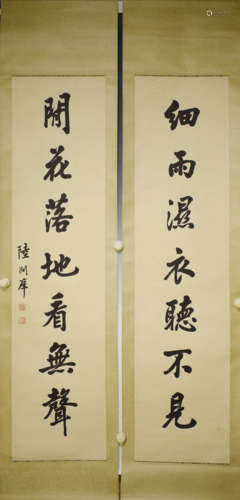 細雨濕衣聽不見
閒花落地看無聲
陸潤庠